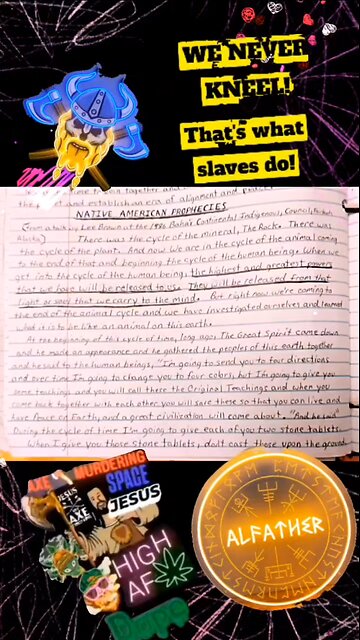 WE NEVER
KNEEL!
That's what
slaves do!
NATIVE AMERICAN PROPHECIES
(From a talk by Lee Brown at the 1986 Bahai Continental Indigenous Council, Tanana
Alaska)
There was the cycle of the mineral, The Rock. There was
the cycle of the plant. And now we are in the cycle of the animal coming
to the end of that and beginning the cycle of the human being. When we
get into the cycle of the human being, the highest and greatest powers
that we have will be released to us. They will be released from that
light or soul that we carry to the mind. But right now we're coming to
the end of the animal cycle and we have investigated ourselves and learned
what it is to be like an animal on this earth.
At the beginning of this cycle of time, long ago, The Great Spirit came down
and he made an appearance and he gathered the peoples of this earth together
and he said to the human beings, "I'm going to send you to four directions
and over time I'm going to change you to four colors, but I'm going to give you
some teachings and you will call these the Original Teachings and when you
come back together with each other you will share these so that you can live and
have Peace on Earth, and a great civilization will come about. "And he said"
During the cycle of time I'm going to give each of you two stone tablets.
When I give you those stone tablets, don't cast those upon the ground
AXE MURDERING
SPACE
JESUS
JESUS
AXE
HIGH
AF
Dope
ALFATHER